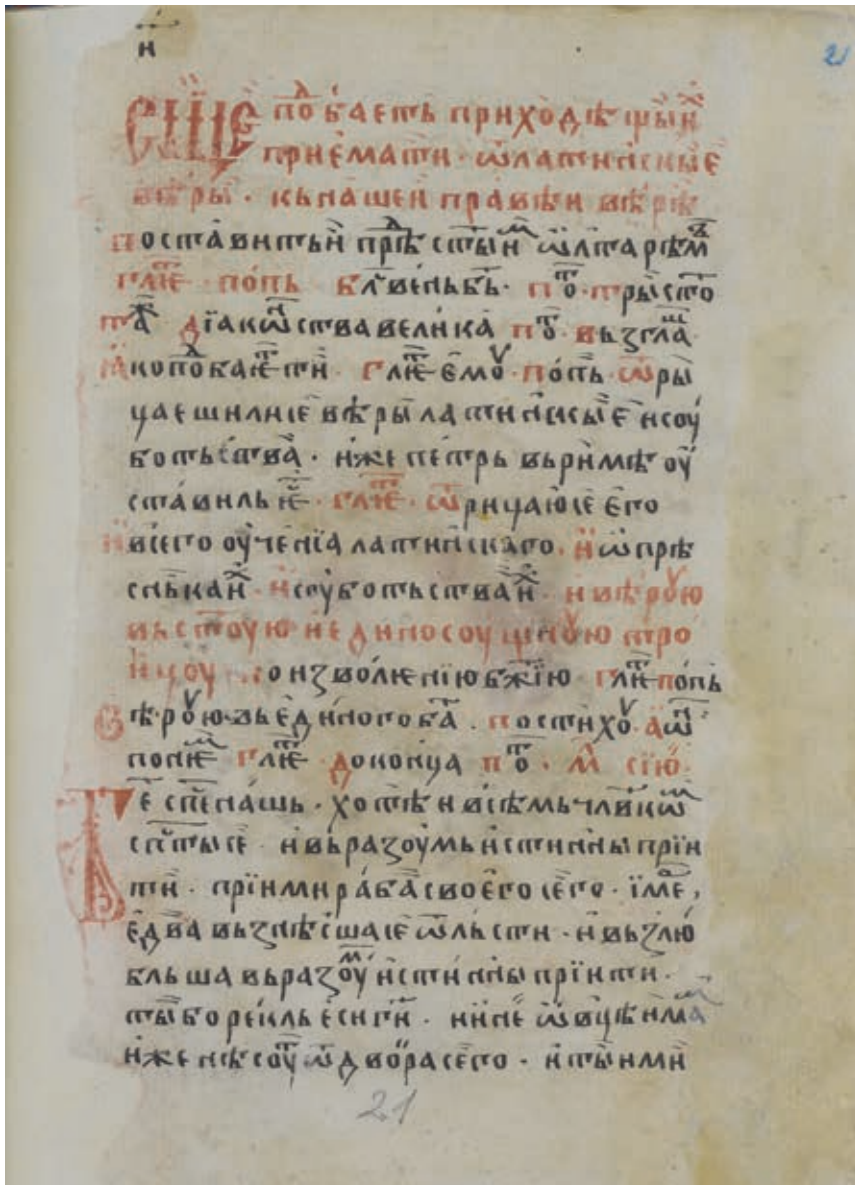 н
21
Сице пⷣобаеть приходѣщⷯыи
приемати · ѿ латинскыѥ
вѣры · кь нашеи правѣи вѣрѣ
поставить и прⷣѣ ст҃ыⷨи ѿлтарѣⷨ
гл҃ѥⷮ попь бл҃вень бь · пⷮо · трыст҃о
таⷤ · дїакѡⷩства велика пⷮо · вьзглаⷲ
ꙗко пⷣобаѥⷮ ти · гл҃ѥⷮ емоу · попь · ѿры
цаеши ли се вѣры латинскыѥ и соу
ботьства · иже петрь вь римѣ оу
ставиль ѥⷭ · гл҃ѥⷮ · ѿрицаю се его
и всего оученїа латинскаго · и ѡпрѣ
сньκаⷯ · и суботьстваⷯ · и вѣроую
вь ст҃оую и единосоущноую тро
ицоу оизволенїю бж҃їю гл҃ѥⷮ попь
вѣроую вь единого ба҃ · по стихоу · аѿⷩ
по нѥⷨ гл҃ѥⷮ до конца пⷮо · мⷧ сїю
Бе сп҃се нашь · хотѣи всѣмь чл҃вкѡⷨ
сп҃сти се · и вь разоумь истинны прїи
ти · прїими раба своего сего · їме ,
едва вьзнѣсша се ѿ льсти · и вьзлю
бльша вь разоуⷨ истинны прїити ·
ты бо рекль еси ги҃ · и ине ѡвце имаⷨ
иже не соуⷮ ѿ двора сего · и ты ими
21